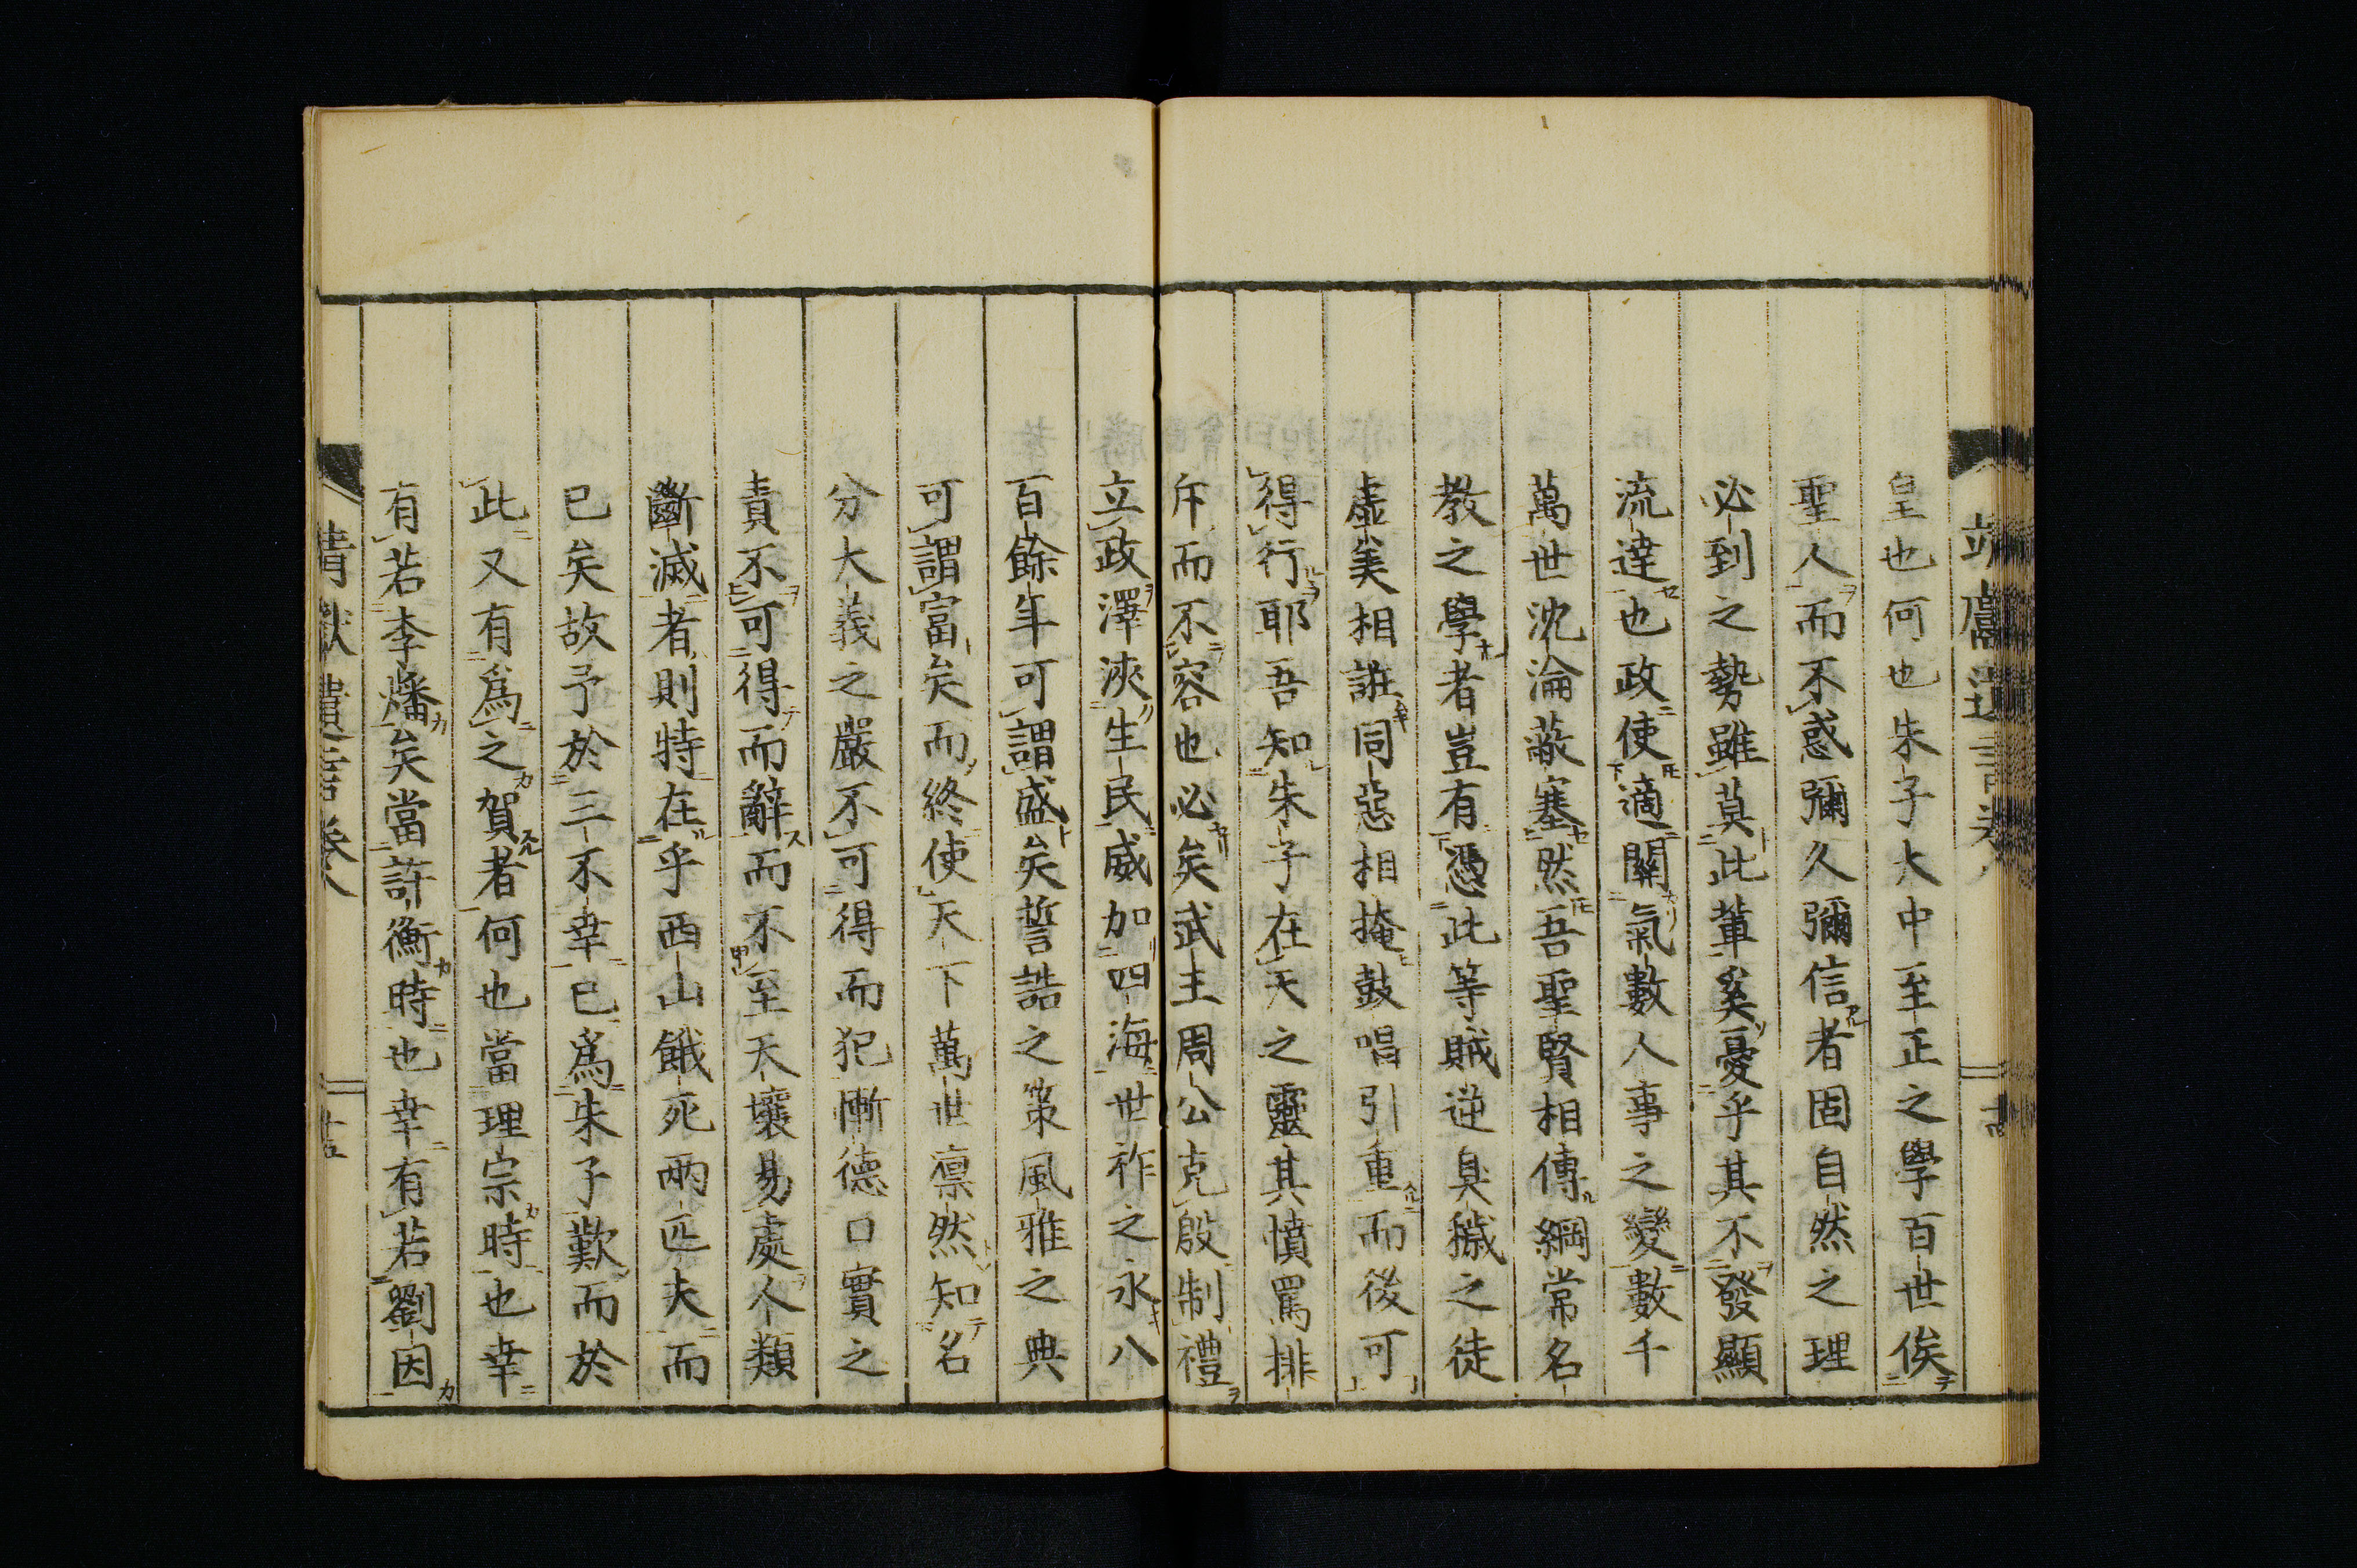 皇也何也朱子大中至正之學百世俟
聖人而不惑彌久彌信者固自然之理
必到之勢雖莫此輩奚憂乎其不發顯
流達也政使適關氣數人事之變數千
萬世沈淪蔽塞然吾聖賢相傳綱常名
教之學者豈有憑此等賊逆臭穢之徒
虛美相誑同惡相掩鼓唱引重而後可
得行耶吾知朱子在天之靈其憤罵排
斥而不容也必矣武王周公克殷制禮
立政澤浹生民威加四海世祚之永八
百餘年可謂盛矣誓誥之策風雅之典
可謂富矣而終使天下萬世凛然知名
分大義之嚴不可得而犯慚德口實之
責不可得而辭而不至天壤易處人類
斷滅者則特在乎西山餓死兩匹夫而
已矣故予於三不幸已爲朱子歎而於
此又有爲之賀者何也當理宗時也幸
有若李燔矣當許衡時也幸有若劉因
靖獻遺言卷八